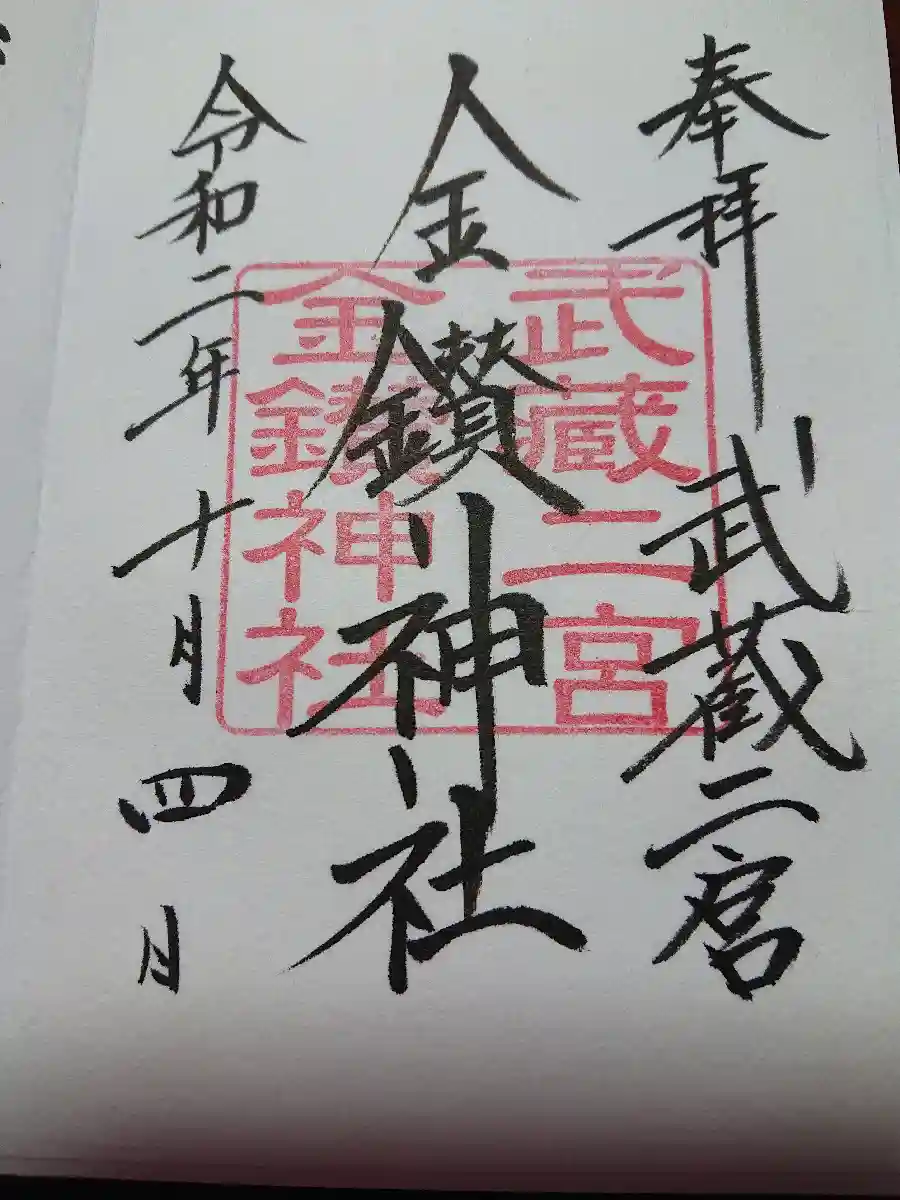 奉拝 武蔵二宮
金鑚神社
令和二年十月四日
武蔵二宮
金鑚神社